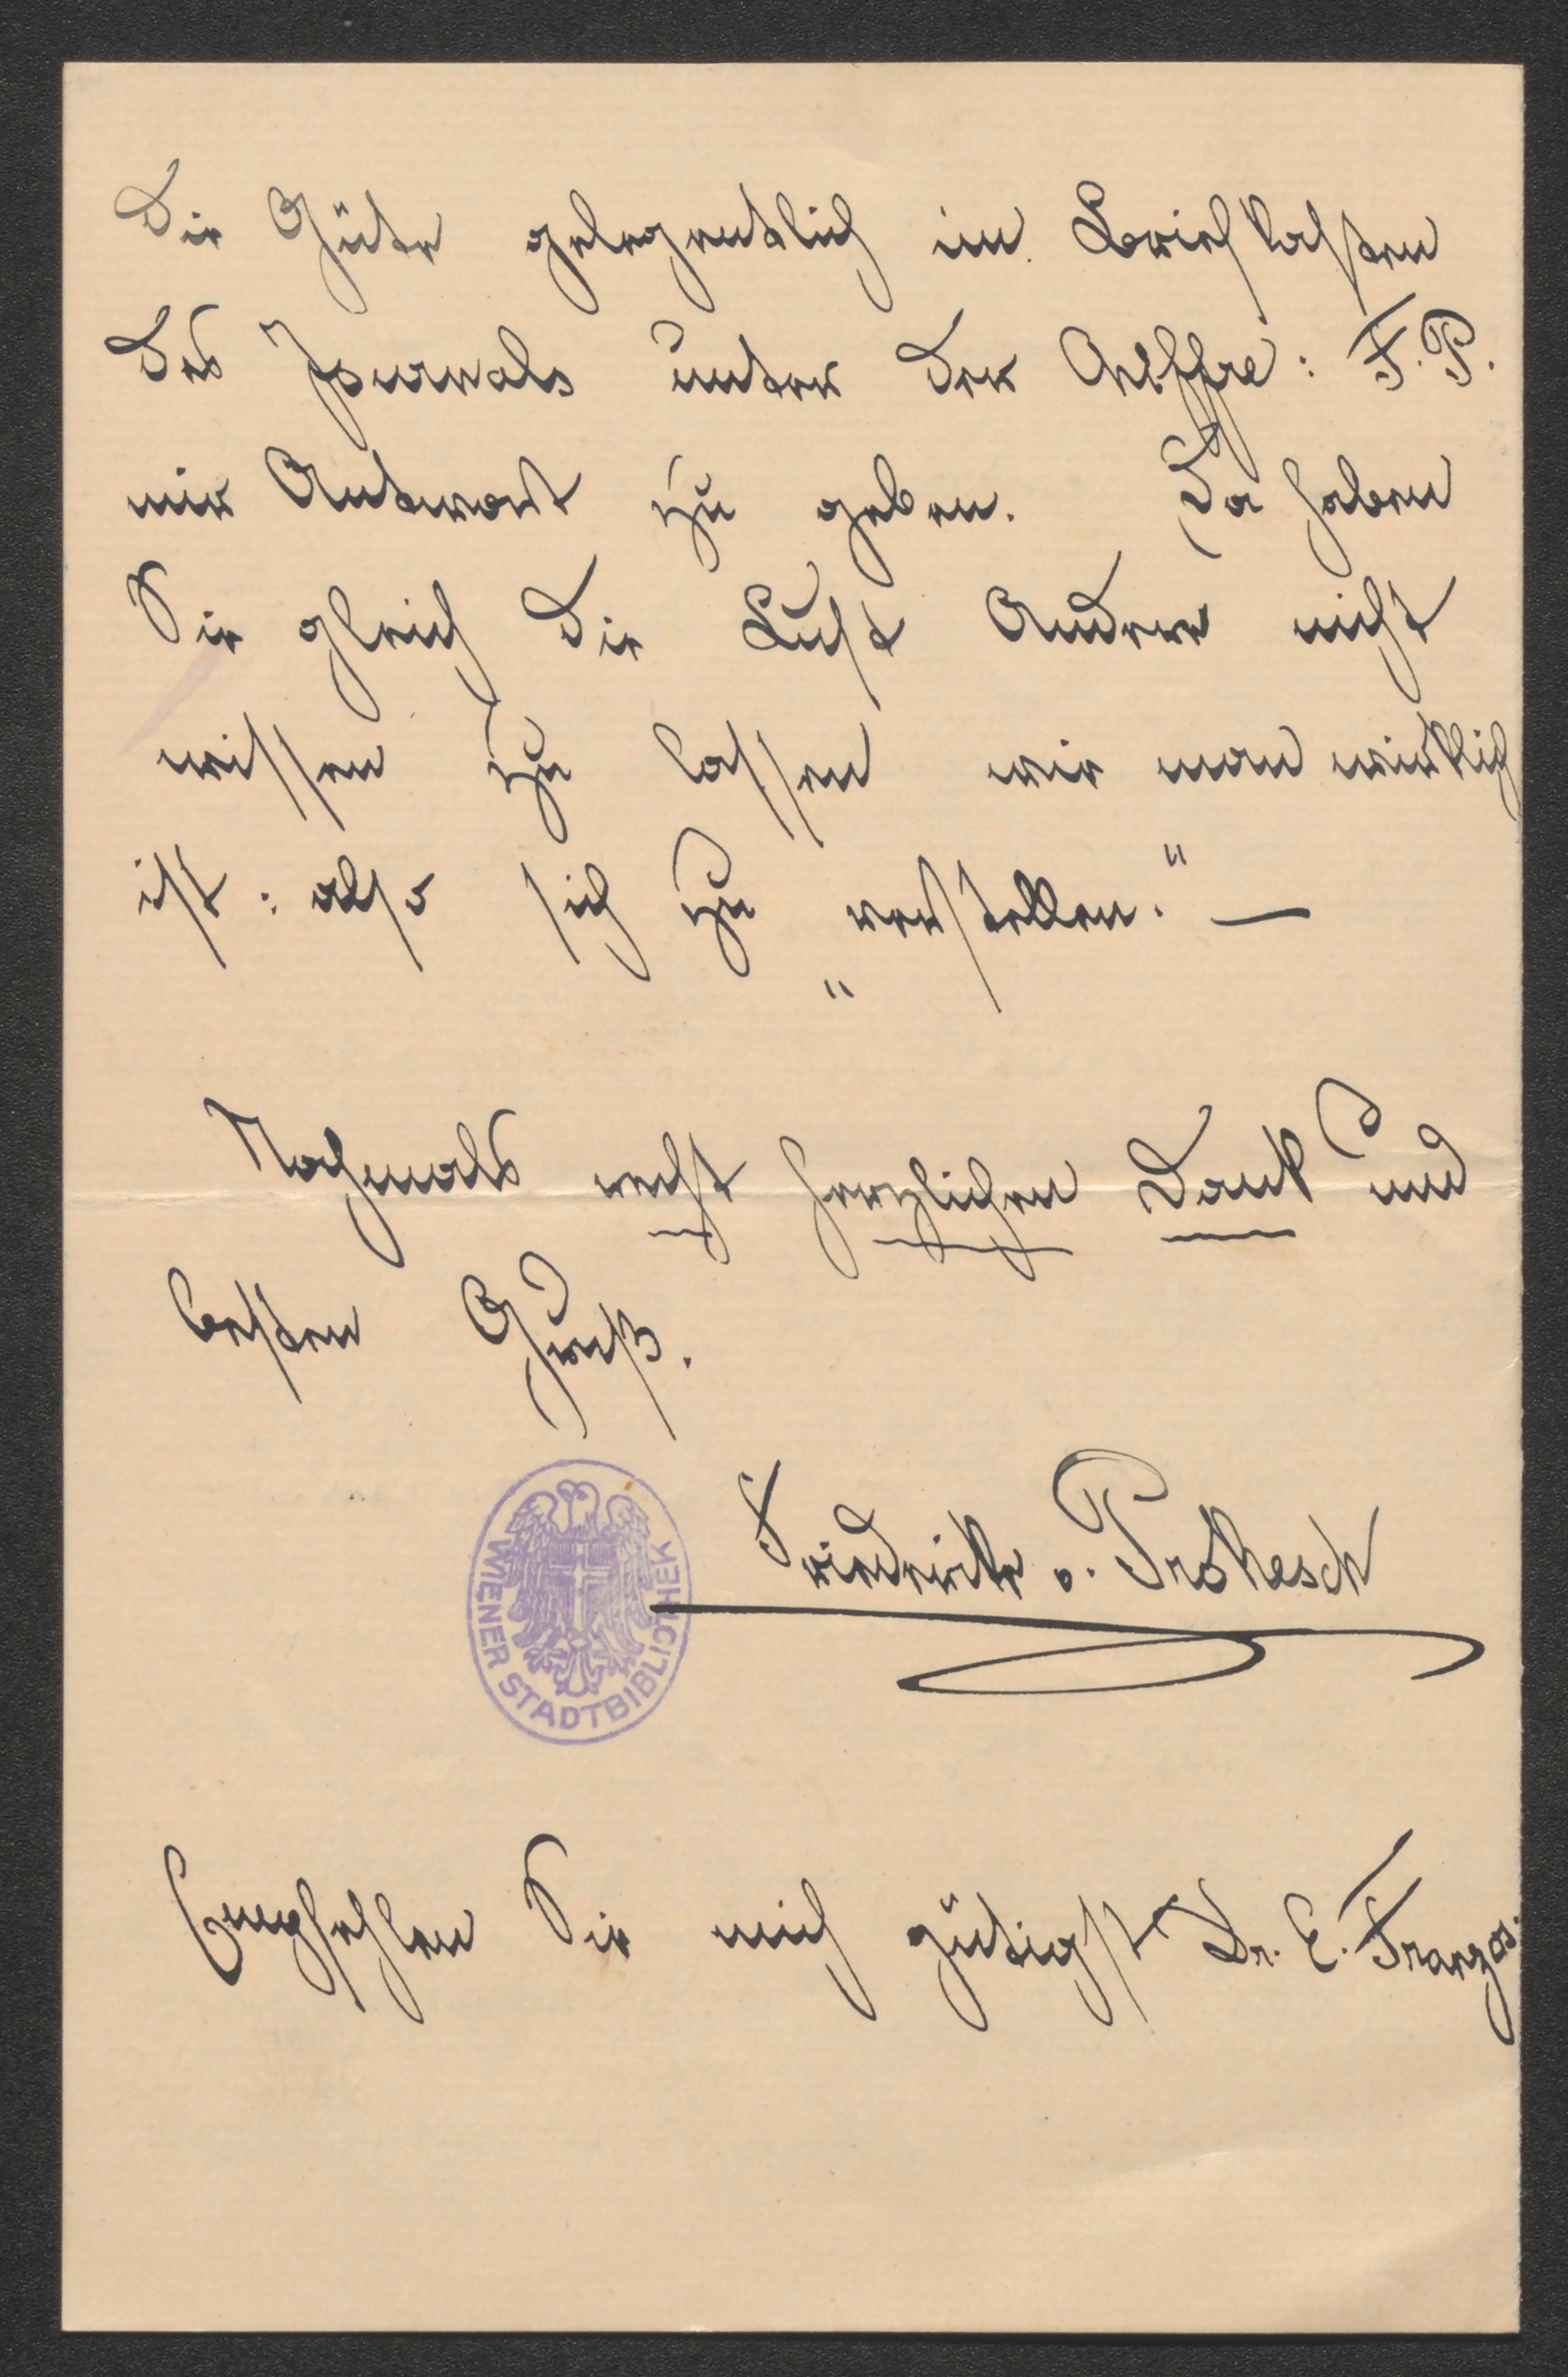 die Güte gelegentlich im Briefkasten
des Journals unter der Chiffre: F. P.
mir Antwort zu geben. Da haben
Sie gleich die Lust Andere nicht
wissen zu lassen wie man wirklich
ist: also sich zu „verstellen." —
Nochmals recht herzlichen Dank und
besten Gruß.
Friederike v. Prokesch
WIENER STADTBIBLIOTHEK
Empfehlen Sie mich gütigst Dr. E. Franzos.